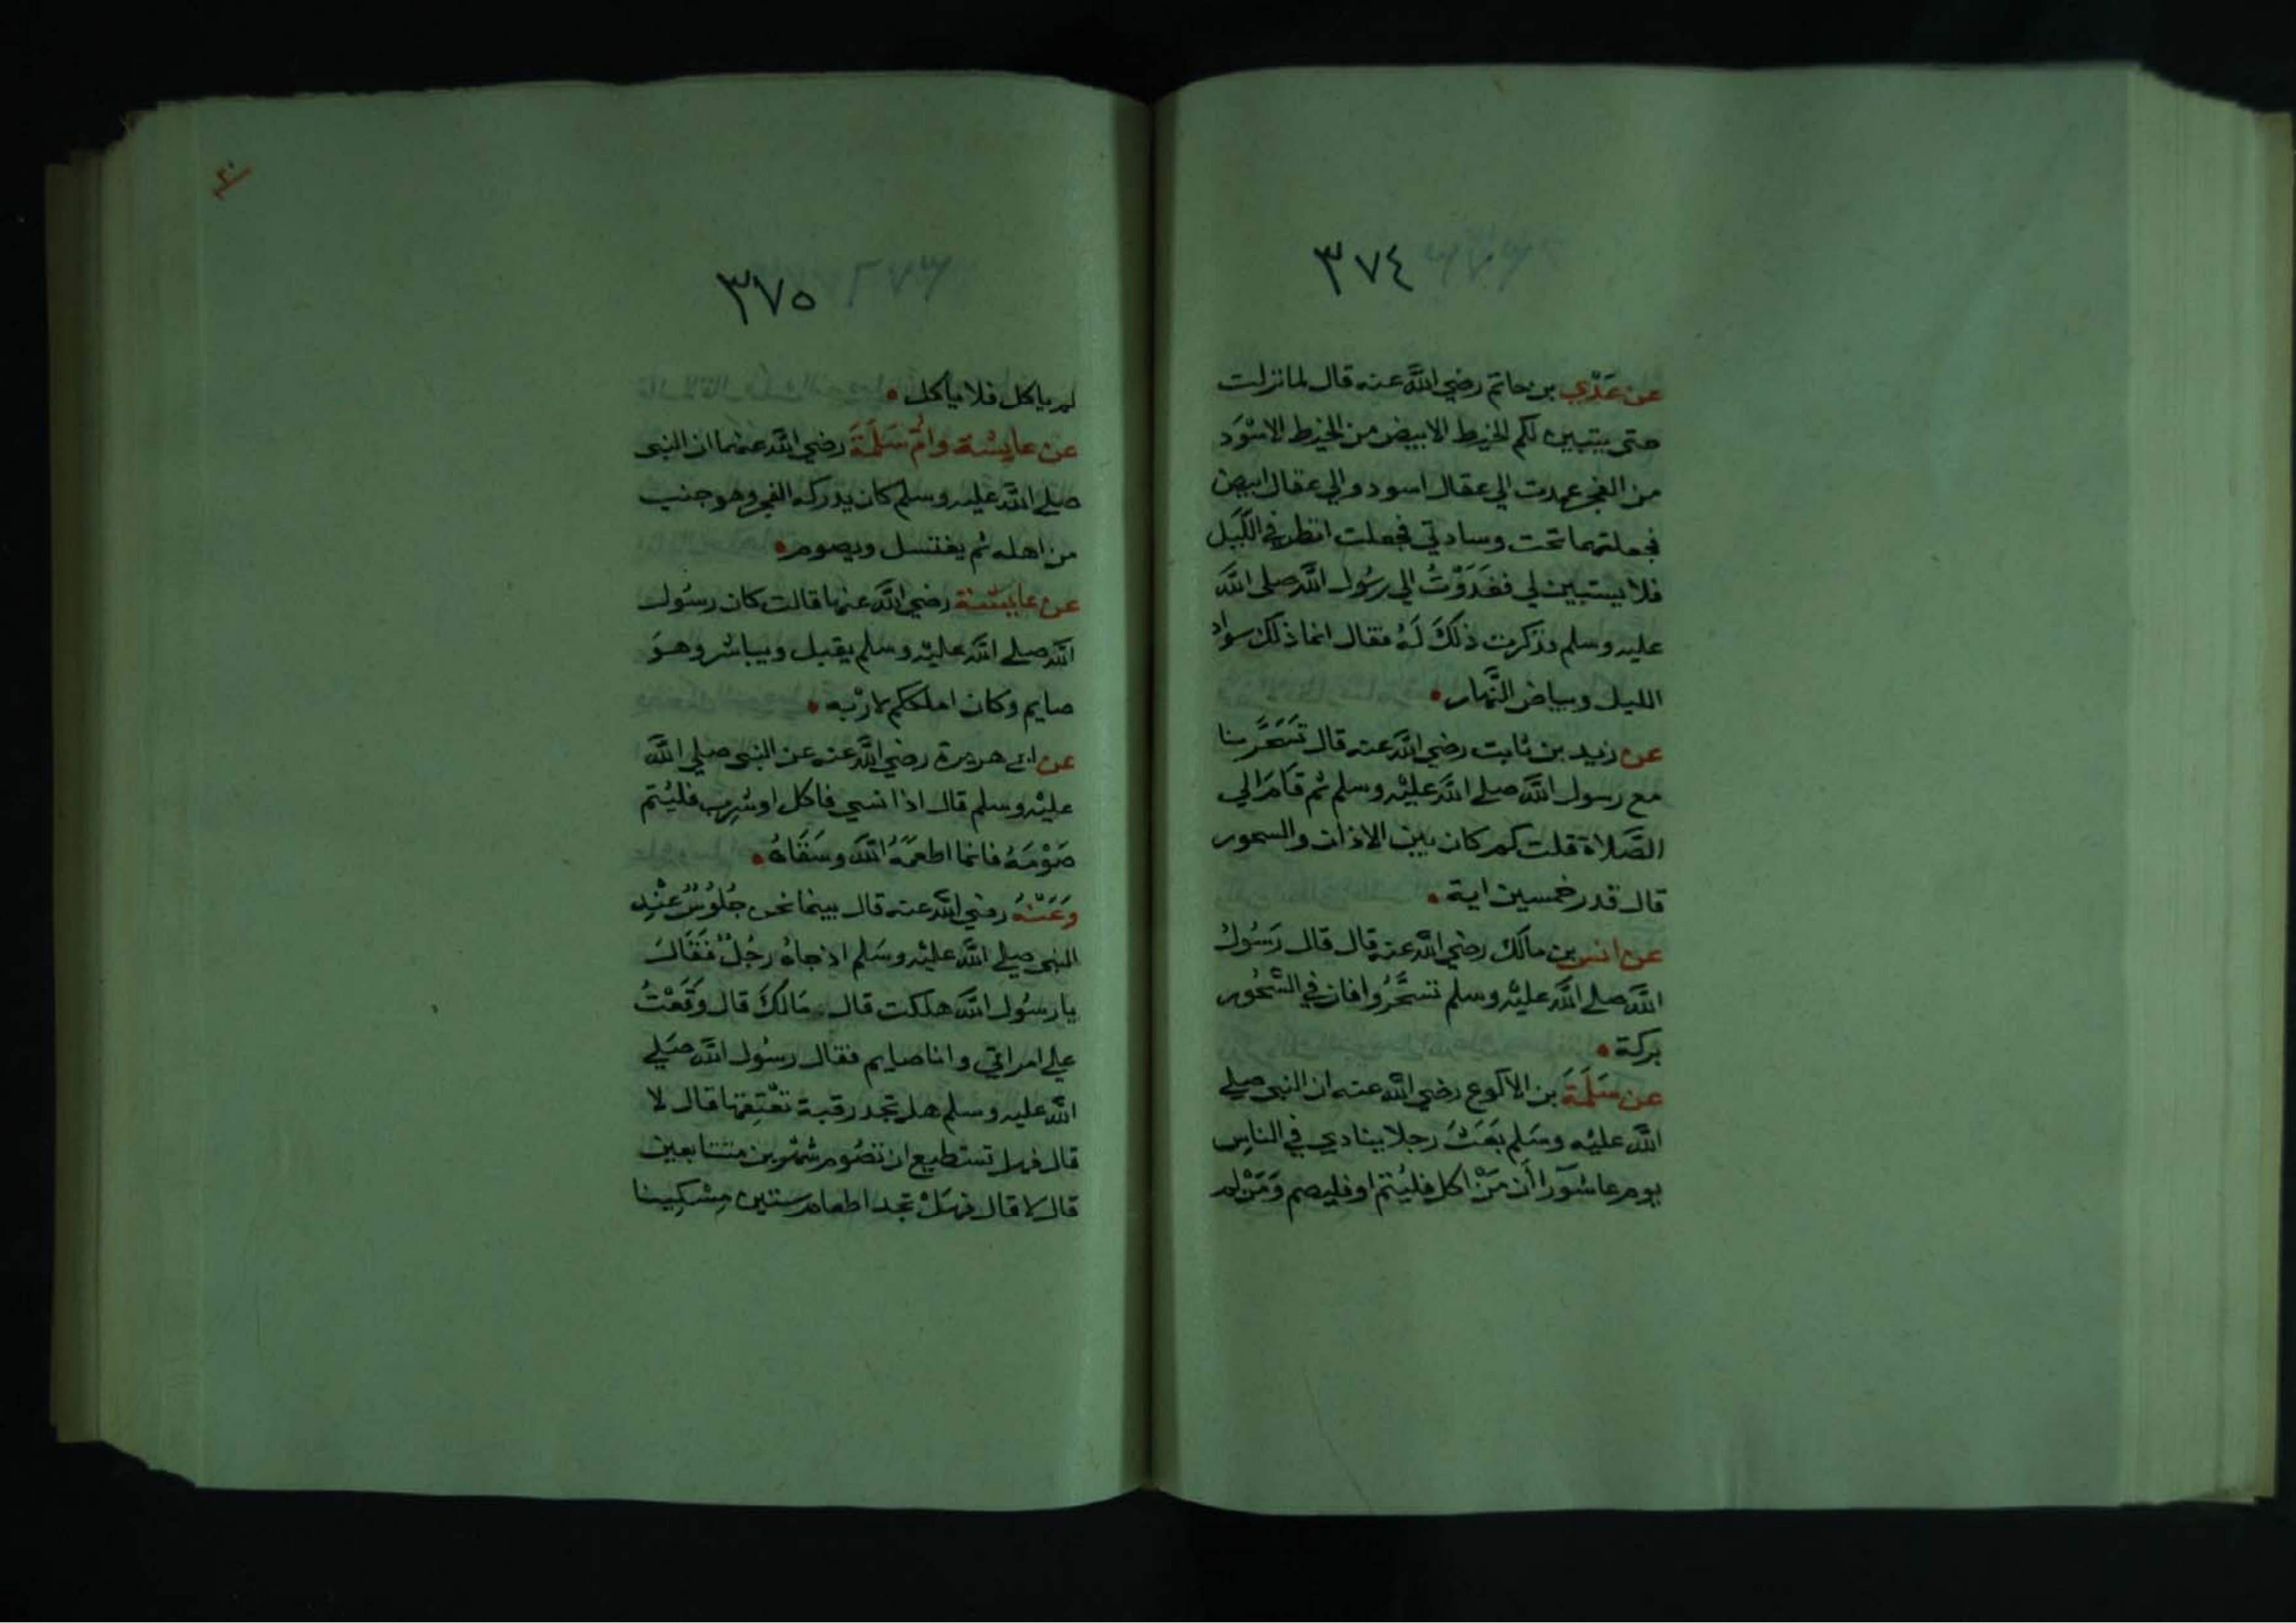 ٣٧٤
عن عَدْي بن حاتم رضي الله عنه قال لما نزلت
حتى يتبين لكم الخيط الابيض من الخيط الاسْوَد
من الفجر عمدت الي عقال اسود والي عقال ابيض
فجعلتهما تحت وسادتي فجعلت انظر في اللَّيل
فلا يستبين لي فغَدَوْتُ الي رسُول الله صلى الله
عليه وسلم فذكرت ذلكَ لَهُ فقال انما ذلك سواد
الليل وبياض النَّهار
عن زيد بن ثابت رضي الله عنه قال تَسَحَّرنا
مع رسول الله صلي الله عليْه وسلم ثم قَامَ الي
الصَّلاة قلت كم كان بين الاذان والسحور
قال قدر خمسين اية
عن انس بن مالك رضي الله عنه قال قال رَسُولُ
الله صلي الله عليْه وسلم تسحَّرُوا فان في السُّحُور
بركة
عن سَلَمَةَ بن الاكوع رضي الله عنه ان النبي صلي
الله عليْه وسَلم بَعَثَ رجلا ينادي في الناسِ
يوم عاشورآ أن مَنْ اكل فليُتم او فليصم وَمَنْ لم
٣٧٥
لم ياكل فلا يأكل
عن عايشة وامُّ سَلَمَةَ رضي الله عنهما ان النبي
صلي الله عليه وسلم كان يدركه الفجر وهو جنب
من اهله ثم يغتسل ويصوم
عن عايشة رضي الله عنها قالت كان رسُول
الله صلي الله عليْه وسلم يقبل ويباشر وهوَ
صايم وكان املككم لارْبه
عن ابي هريرة رضي الله عنه عن النبي صلي الله
عليْه وسلم قال اذا نسي فاكل او شرِب فليُتم
صَوْمَهُ فانما اطعمَهُ الله وسَقَاهُ
وَعَنْهُ رضي الله عنه قال بينما نحن جُلُوسٌ عنْد
النبي صلي الله عليْه وسَلم اذ جاهُ رجُلٌ فَقَالَ
يا رسُول الله هلكت قال مَالكَ قال وَقَعْتُ
علي امراتي وانا صايم فقال رسُول الله صَلي
الله عليه وسلم هل تجد رقبة تعْتِقها قال لا
قال فهل تستطيع ان تصُوم شهْرين متتابعين
قال لا قال فهَلْ تجد اطعام ستين مِسْكِينا